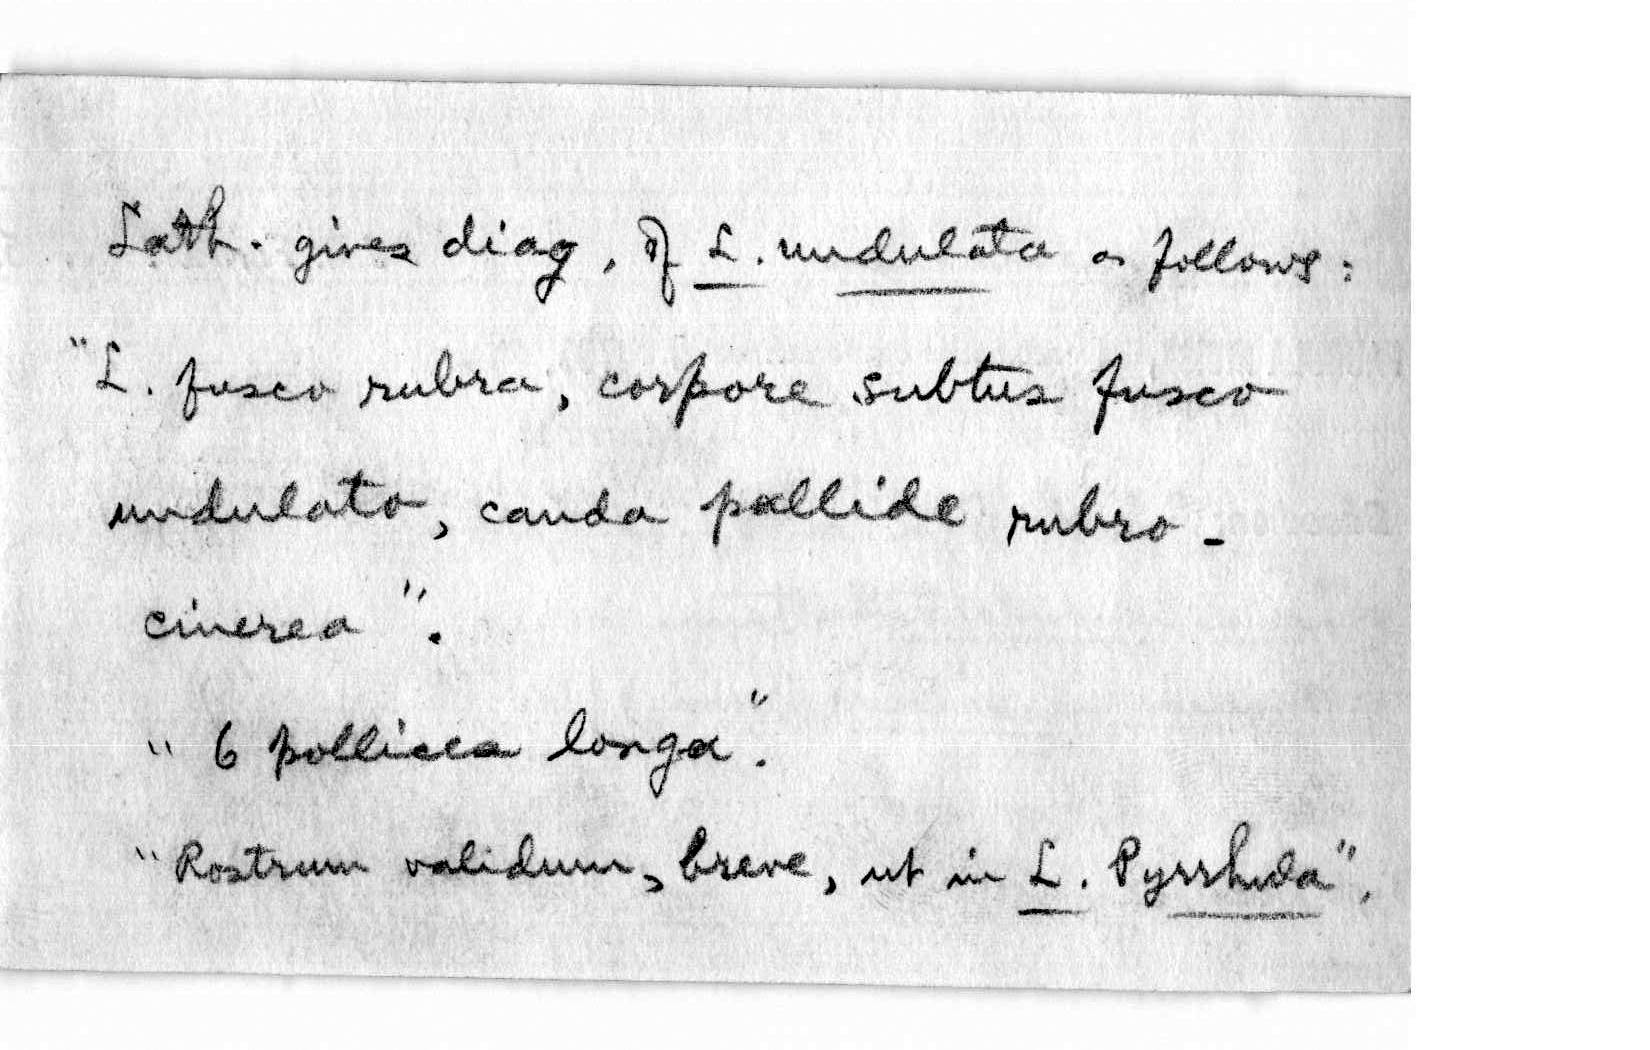 Lath. gives diag. of L. undulata as follows:
"L. fusco rubra, corpore subtus fusco
undulato, cauda pallide rubro-
cinerea".
"6 pollices longa".
"Rostrum validum, breve, ut in L. Pyrrhula".